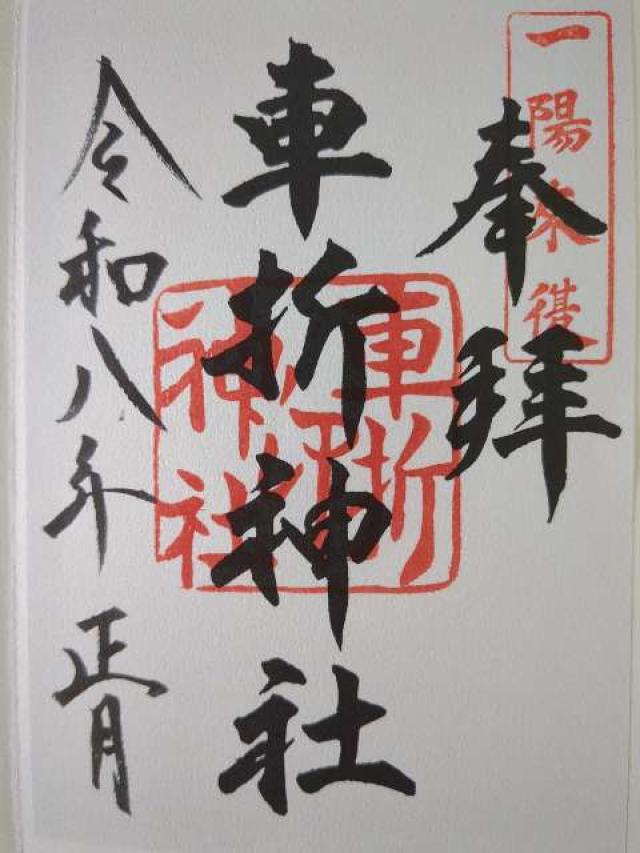 一陽来復
奉拝
車折神社
車折神社
令和八年正月